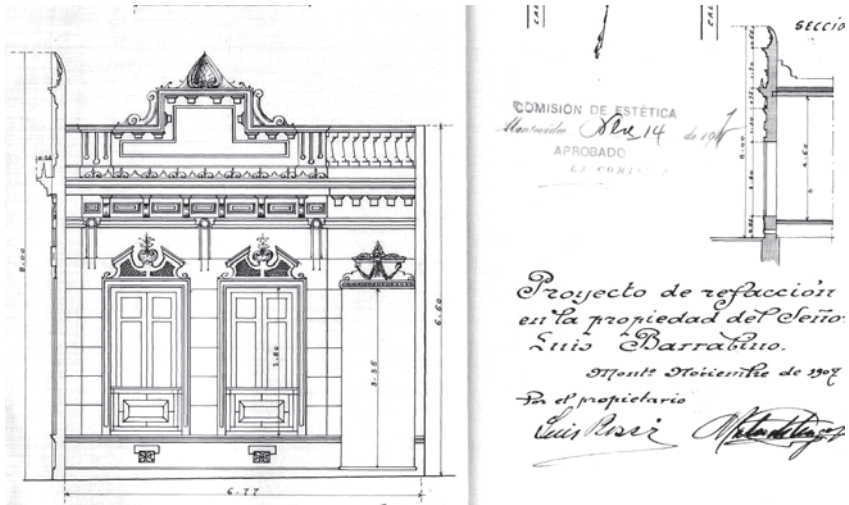 8.00
6.60
2.80
3.35
6.77
CAL
CAL
SECCIO
COMISIÓN DE ESTÉTICA
Montevideo Nbre 14 de 1907
APROBADO
LA COMI
8.00
4.60
Proyecto de refacción
en la propiedad del Seño
Luis Barrabino.
Montº Noviembre de 1907
Por el propietario
Luis Rossi